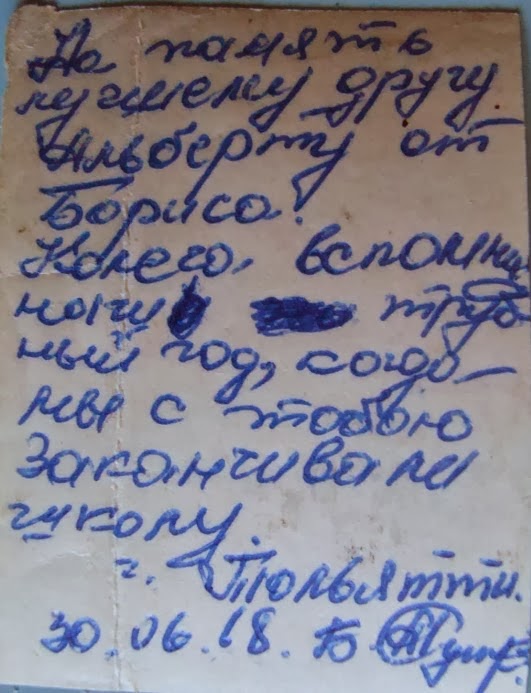 На память
лучшему другу
Альберту от
Бориса.
Колега, вспомни
наш труд
ный год, когда
мы с тобою
заканчивали
школу.
г. Тольятти.
30.06.68. Б